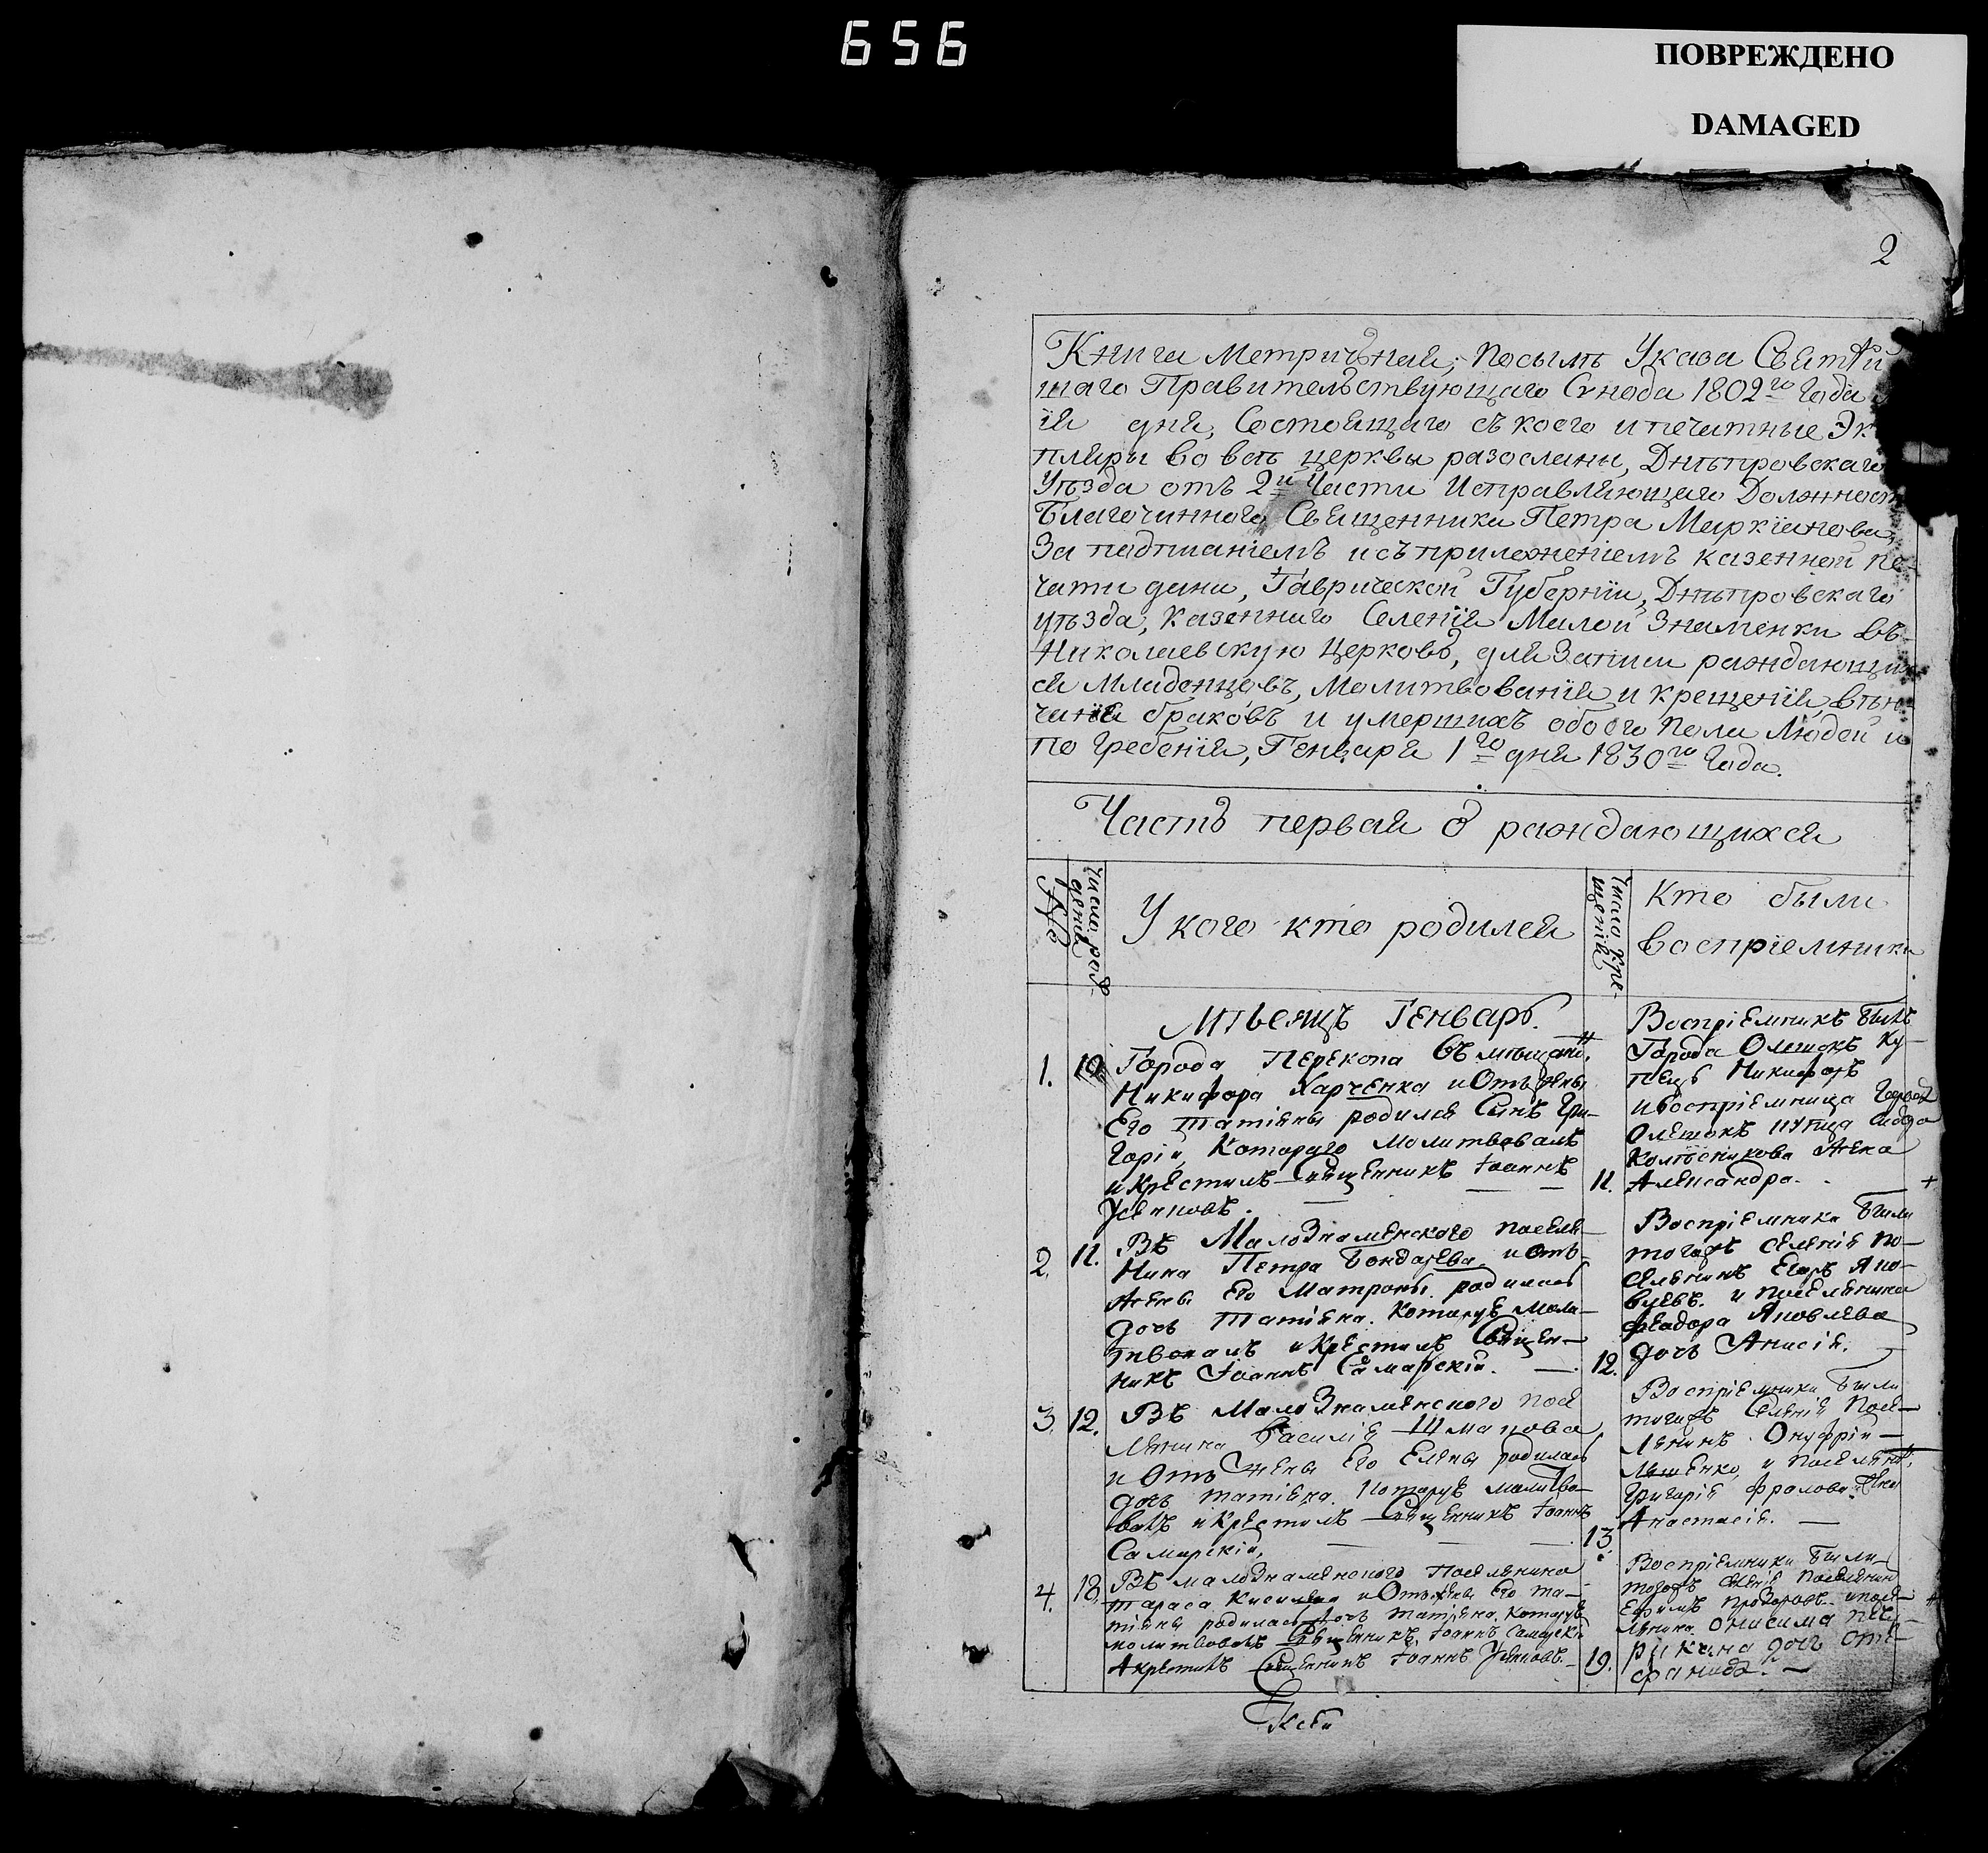 656
ПОВРЕЖДЕНО
DAMAGED
2
Книга Метричная, По силѣ Указа Святѣй
шаго Правительствующаго Сѵнода 1802го Года
дня, Состоящаго съ коего и печатные Эк
пляры во всѣ церквы разосланы, Днѣпровскаго
Уѣзда отъ 2й Части Исправляющаго Должност
Благочиннаго Священника Петра Маркїанова,
За подписанїемъ и съ приложенїемъ казенной пе-
чати дана, Таврической Губернїи, Днѣпровскаго
уѣзда, Казеннаго Селенїя Малой Знаменки въ
Николаевскую Церковь, для Записи раждающих
ся Младенцовъ, Молитвованїя и крещенїя, вѣн-
чанїя браковъ и умершихъ обоего пола Людей и
погребенїя, Генваря 1го дня 1830го Года.
Часть первая о раждающихся
№
Число рож-
денїя
У кого кто родился
Число Кре-
щенїя
Кто были
воспрїемники
Мѣсяцъ Генварь.
1. 10 Города Перекопа
Никифора Харченка и Отъ жены
Его Татіяны родился Сынъ Гри-
горій, Которого Молитвовалъ
и Крестилъ Священникъ Іоаннъ
Усяновъ.
Воспріемникъ Былъ
Города Олешокъ Ку-
пецъ Никифоръ
и Воспріемница Города
Олешокъ купца
Колѣсникова Жена
11. Александра. +
2. 11. Въ МалоЗнаменского поселя-
нина Петра Бондарева и Отъ
Жены Его Матроны родилась
дочь Татіяна. Которую Моли-
твовалъ и Крестилъ Священ-
никъ Іоаннъ Самарскій.
Воспріемники Были
тогожъ селенія по-
селянинъ Егоръ Яко-
влевъ. и поселянина
Феодора Яковлева
12. дочь Анисія.
3. 12. Въ МалоЗнаменского посе
лянина Василія Шманова
и Отъ жены Его Елены родилась
дочь татіяна. Которую молитво-
валъ и Крестилъ Священникъ Іоаннъ
Самарскій,
Воспріемники Были
тогожъ Селенія посе-
лянинъ Онуфрій
Ляшенко, и поселян.
Григорія Фролова Жена
13. Анастасія.
4. 18. Въ малоЗнаменского Поселянина
тараса Кисиляа и Отъ жены Его Та-
тіяны родилась дочь татіяна. Которую
молитвовалъ Священникъ, Іоаннъ Самарскій
А крестилъ Священникъ Іоаннъ Усяновъ.
Воспріемники Были
тогожъ селенія поселянин
Ефимъ и посе-
лянина Онисима
19. дочь Сте-
фанида.